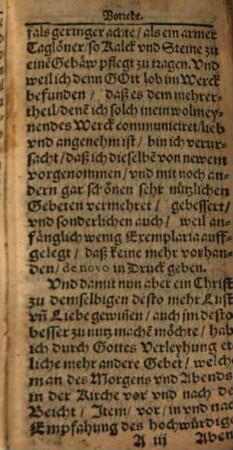 Vorrede.
fals geringer achte / als ein armer
Taglöner / so Kalck vnd Steine zu
einē Gebäw pflegt zu tragen. Vnd
weil ich denn GOtt lob im Werck
befunden / daß es dem mehrer-
theil / denē ich solch mein wolmey-
nendes Werck communiciret / lieb
vnd angenehm ist / bin ich verur-
sacht / daß ich dieselbē von newem
vorgenommen / vnd mit noch an-
dern gar schönen sehr nützlichen
Gebeten vermehret / gebessert /
vnd sonderlichen auch / weil an-
fänglich wenig Exemplaria auff-
gelegt / daß keine mehr vorhan-
den / de novo in Druck geben.
Vnd damit nun aber ein Christ
zu demselbigen desto mehr Lust
vñ Liebe gewiñen / auch jm desto
besser zu nutz machē möchte / hab
ich durch Gottes Verleyhung et-
liche mehr andere Gebet / welche
man des Morgens vnd Abends
in der Kirche vor vnd nach der
Beicht / Item / vor / in vnd nach
Empfahung des hochwürdige
A iij Aben